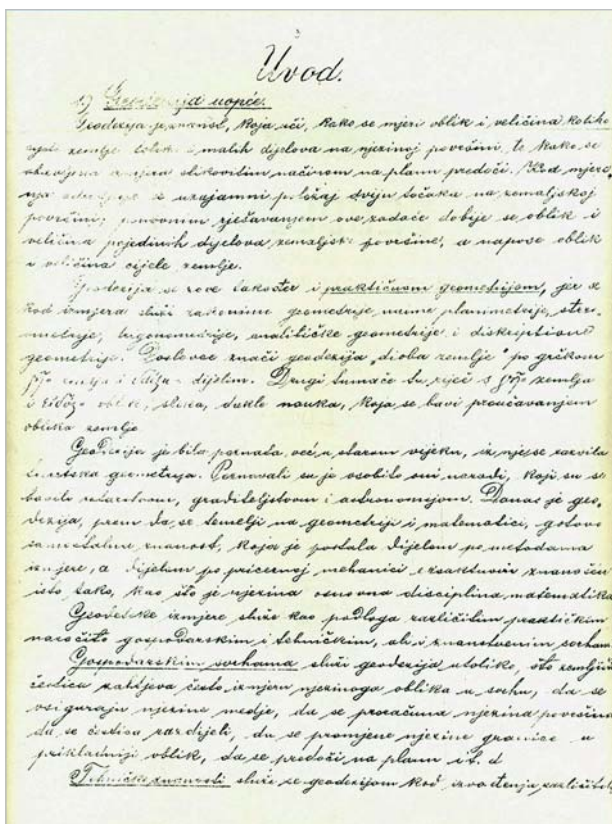 Uvod.
1) Geodezija uopće.
Geodezija je znanost, koja uči, kako se mjeri oblik i veličina koliko
zemlje toliko i malih dijelova na njezinoj površini, te kako se
izmjera slikovitim načinom na planu predoči. Kod mjere-
nja se uzajamni položaj dviju točaka na zemaljskoj
površini; ponovnim rješavanjem ove zadaće dobije se oblik i
veličina pojedinih dijelova zemaljske površine, a napose oblik
i veličina cijele zemlje.
Geodezija se zove također i praktičnom geometrijom, jer se
kod izmjera služi zakonima geometrije, naime planimetrije, stereo-
metrije, trigonometrije, analitičke geometrije i deskriptivne
geometrije. Doslovce znači geodezija „dioba zemlje" po grčkom
zemlja i dijelim. Drugi tumače tu riječ s zemlja
i oblik, slika, dakle nauka, koja se bavi proučavanjem
oblika zemlje
Geodezija je bila poznata već u starom vijeku, iz nje se razvila
geometrija. Poznavali su je osobito oni narodi, koji su se
bavili ratarstvom, graditeljstvom i astronomijom. Danas je geo-
dezija, prem da se temelji na geometriji i matematici, gotovo
samostalna znanost, koja je postala dijelom po metodama
izmjere, a dijelom po mehanici
isto tako, kao što je njezina osnovna disciplina matematika
Geodetske izmjere služe kao podloga različitim praktičkim
naročito gospodarskim i tehničkim, ali i znanstvenim svrhama
Gospodarskim svrhama služi geodezija utoliko, što zemljišna
čestica zahtjeva često izmjeru njezinoga oblika u svrhu, da se
osiguraju njezine medje, da se proračuna njezina površina
da se čestica razdijeli, da se promjene njezine granice u
prikladniji oblik, da se predoči na planu i t. d
Tehničke znanosti služe se geodezijom kod izvođenja